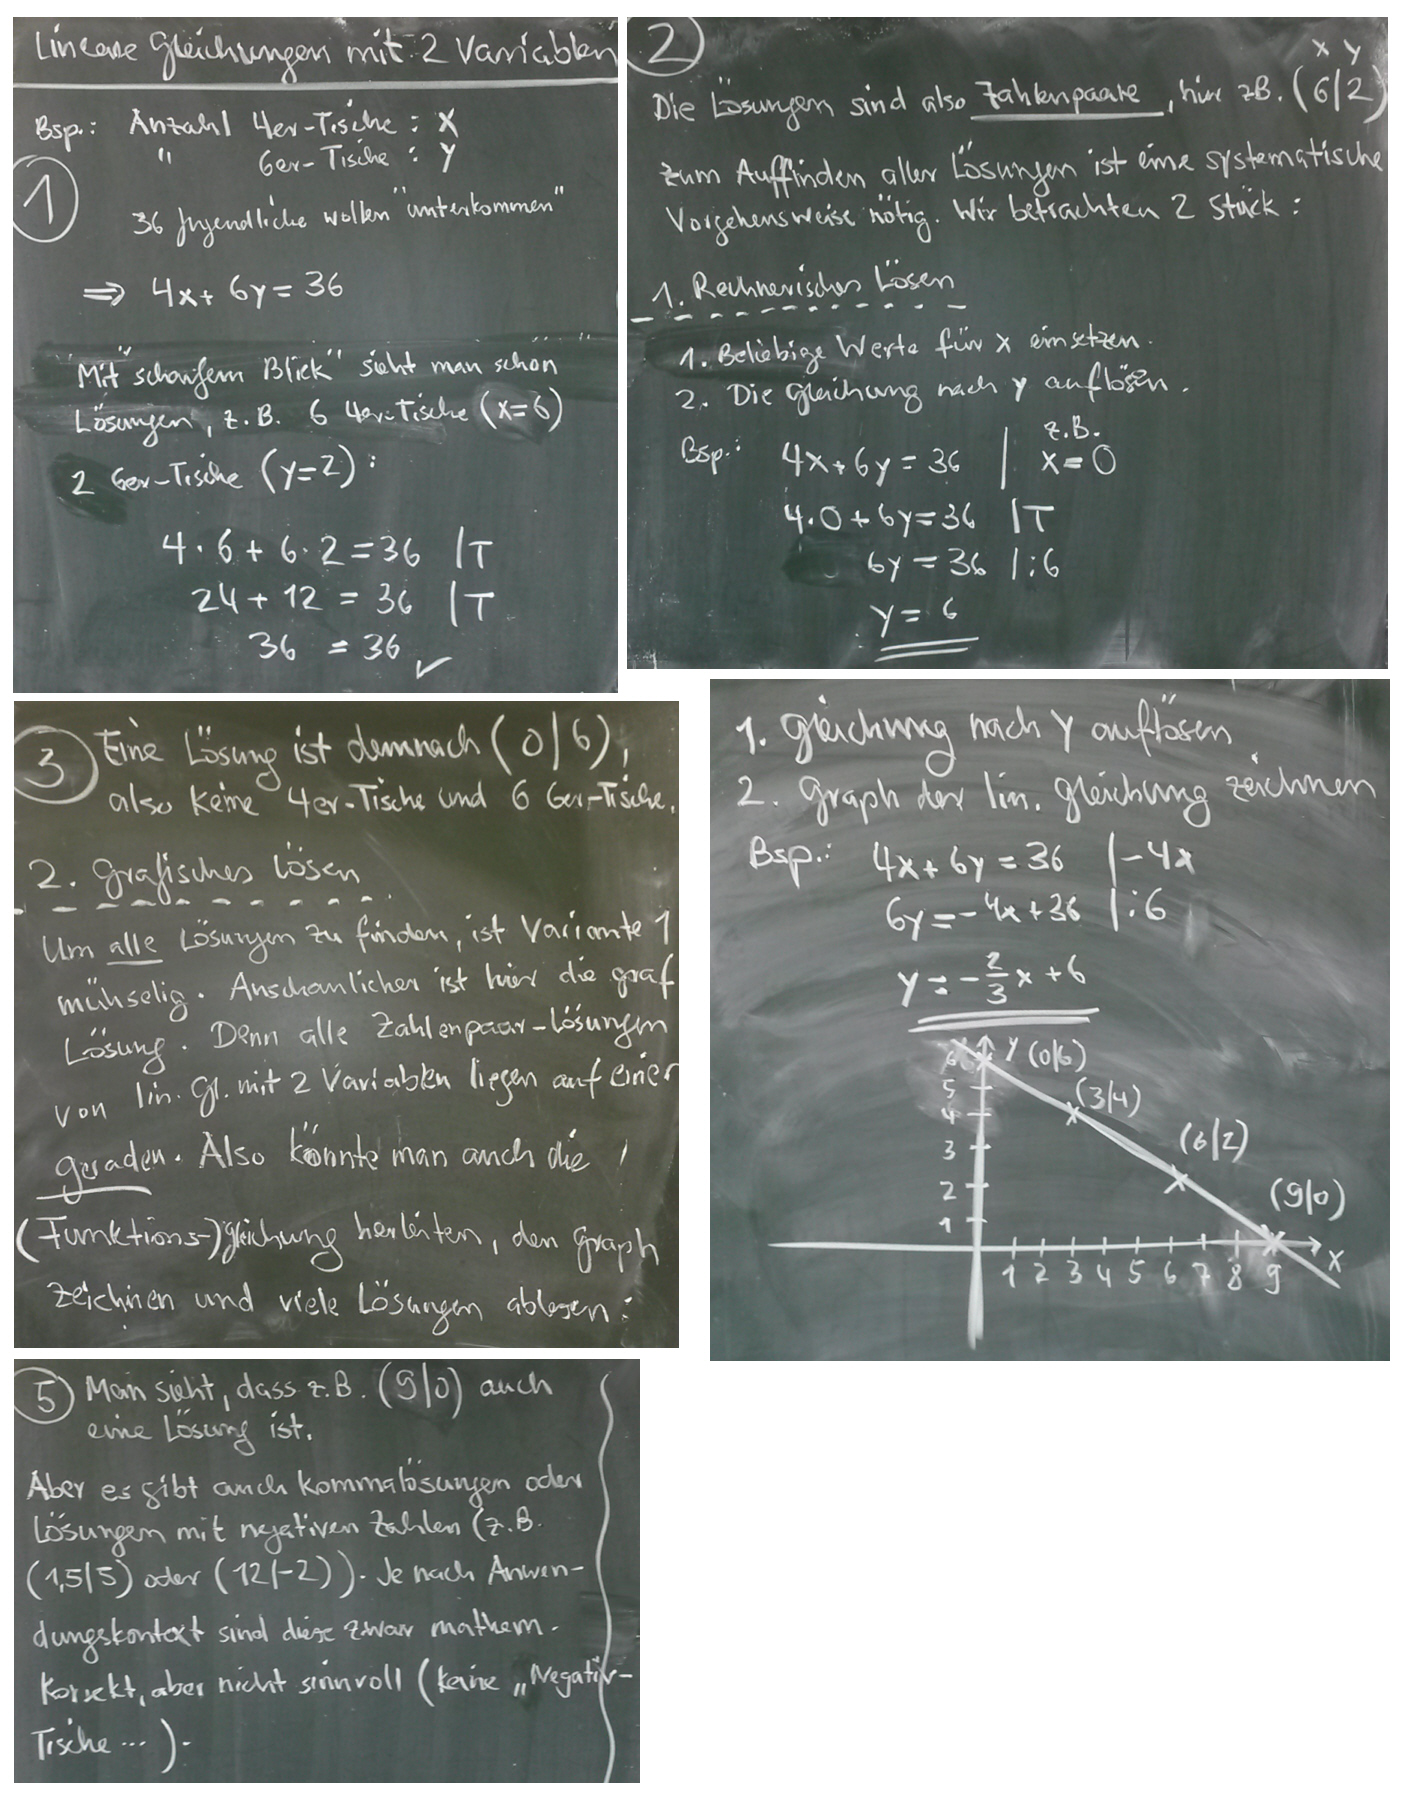 Lineare Gleichungen mit 2 Variablen
Bsp.: Anzahl 4er-Tische : x
" 6er-Tische : y
1
36 Jugendliche wollen "unterkommen"
⇒ 4x + 6y = 36
"Mit scharfem Blick" sieht man schon
Lösungen, z.B. 6 4er-Tische (x=6)
2 6er-Tische (y=2):
4·6 + 6·2 = 36 |T
24 + 12 = 36 |T
36 = 36 ✓
2
x y
Die Lösungen sind also Zahlenpaare, hier zB. (6|2)
Zum Auffinden aller Lösungen ist eine systematische
Vorgehensweise nötig. Wir betrachten 2 Stück:
1. Rechnerisches Lösen
1. Beliebige Werte für x einsetzen.
2. Die Gleichung nach y auflösen.
z.B.
Bsp.: 4x+6y = 36 | x=0
4·0+6y=36 |T
6y = 36 |:6
y = 6
3 Eine Lösung ist demnach (0|6),
also keine 4er-Tische und 6 6er-Tische.
2. Grafisches Lösen
Um alle Lösungen zu finden, ist Variante 1
mühselig. Anschaulicher ist hier die graf
Lösung. Denn alle Zahlenpaar-Lösungen
von lin. Gl. mit 2 Variablen liegen auf einer
Geraden. Also könnte man auch die
(Funktions-)gleichung herleiten, den Graph
zeichnen und viele Lösungen ablesen:
1. Gleichung nach y auflösen
2. Graph der lin. Gleichung zeichnen
Bsp.: 4x+6y = 36 |-4x
6y = -4x+36 |:6
y = -2/3 x + 6
6 y (0|6)
5 (3|4)
4
3 (6|2)
2 (9|0)
1
1 2 3 4 5 6 7 8 9 x
5 Man sieht, dass z.B. (9|0) auch
eine Lösung ist.
Aber es gibt auch Kommalösungen oder
Lösungen mit negativen Zahlen (z.B.
(1,5|5) oder (12|-2)). Je nach Anwen-
dungskontext sind diese zwar mathem.
korrekt, aber nicht sinnvoll (keine „Negativ-
Tische ...).